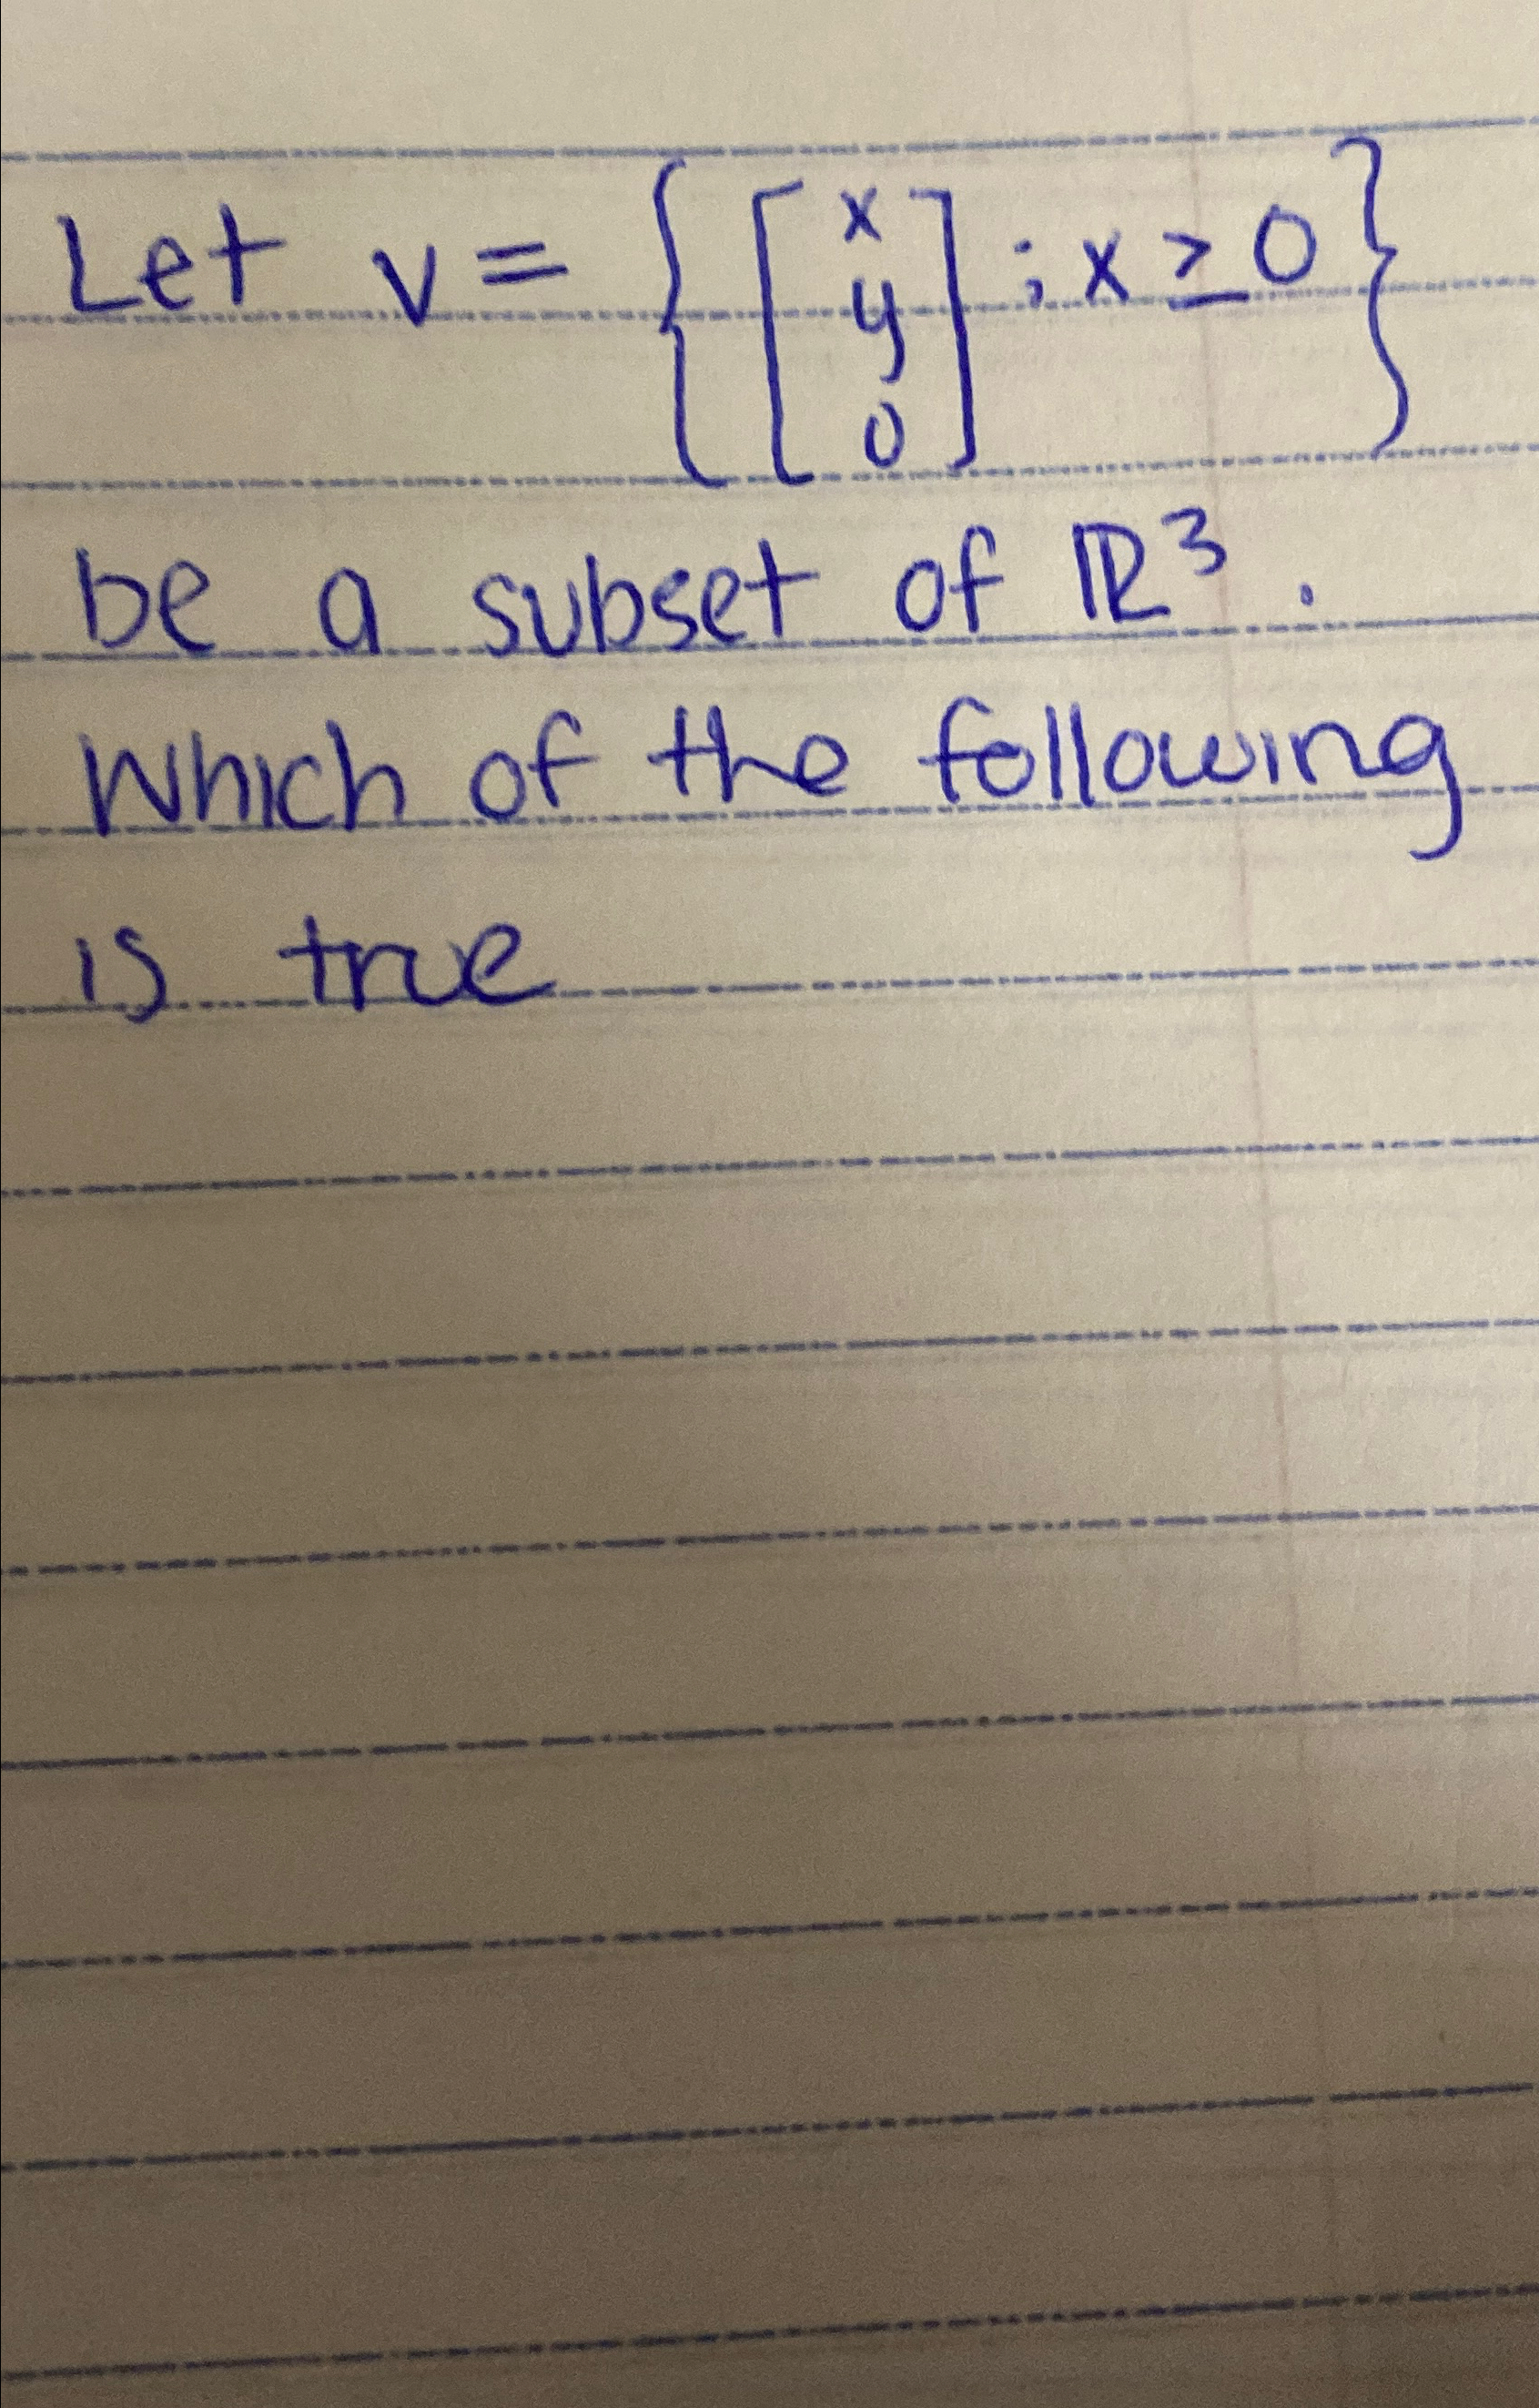 Let v = { [ x y 0 ] ; x ≥ 0 }
be a subset of ℝ³.
Which of the following
is true